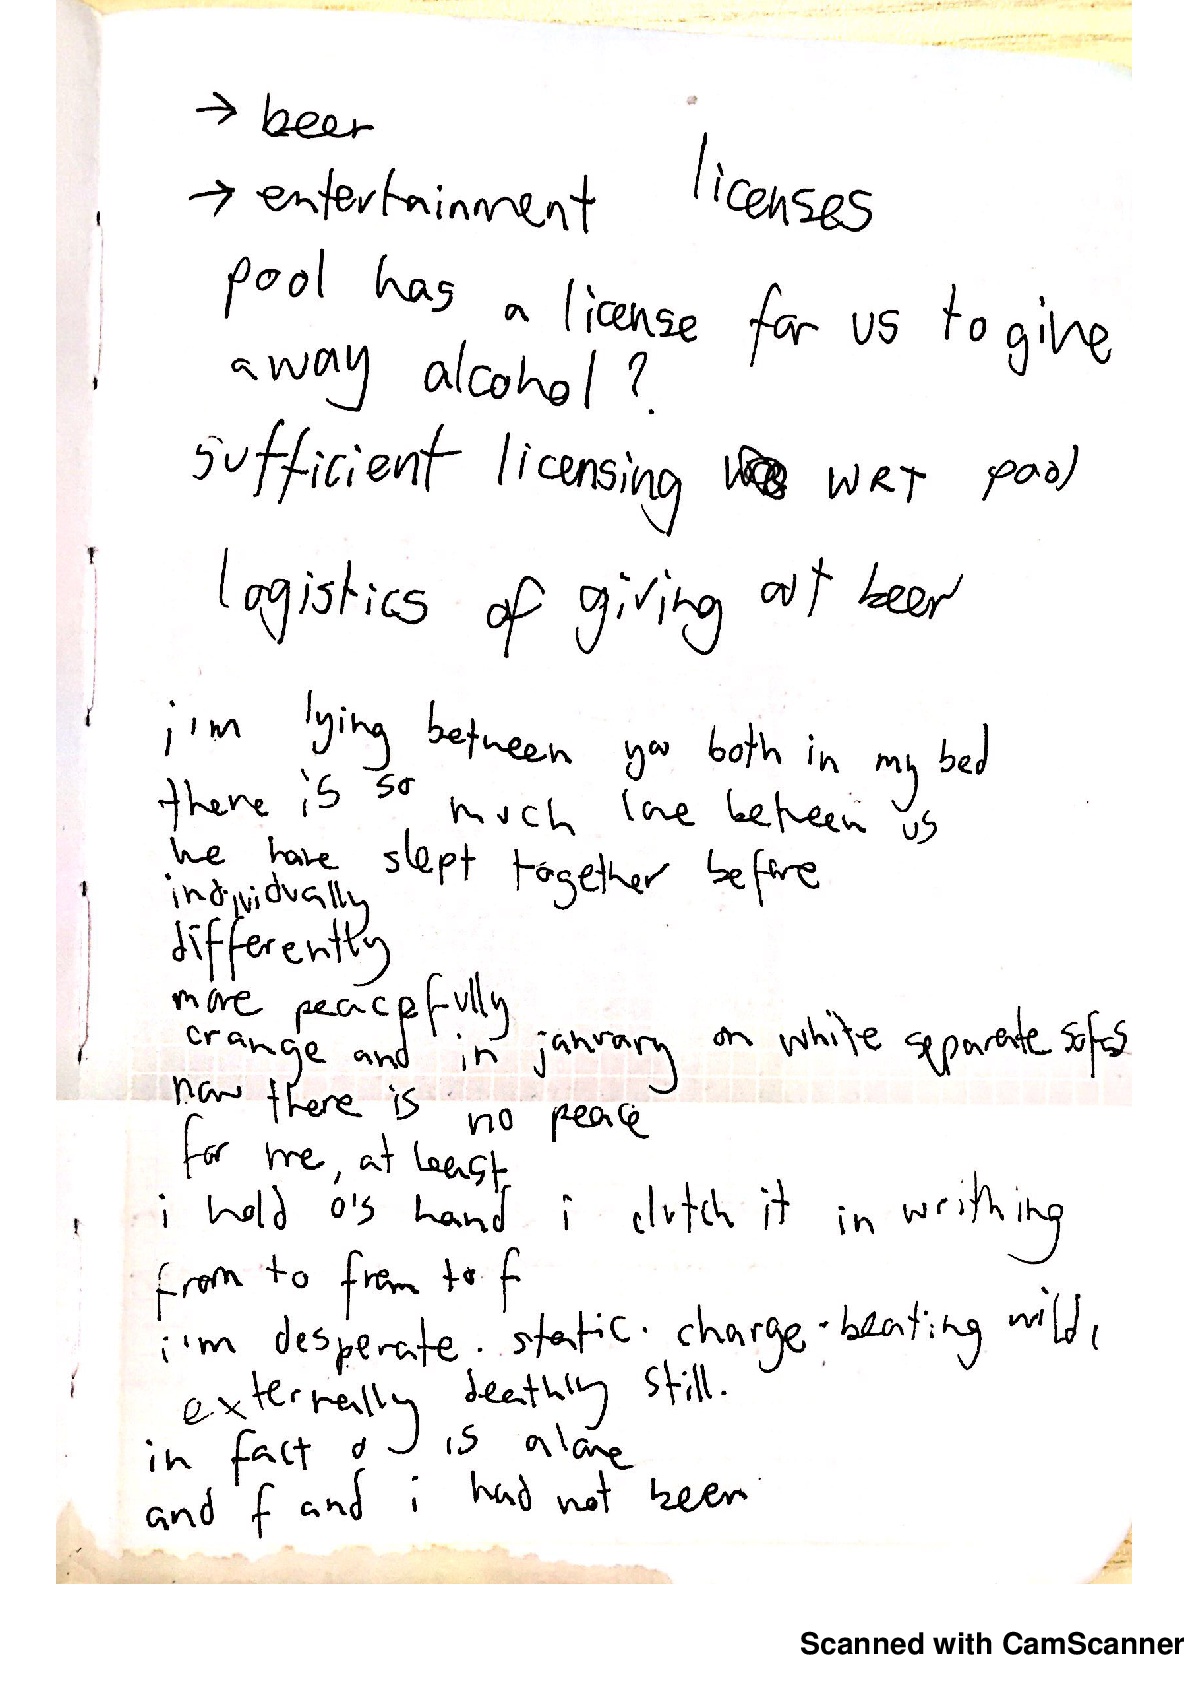 → beer
→ entertainment licenses
pool has a license for us to give
away alcohol?
sufficient licensing WRT pool
logistics of giving out beer
i'm lying between you both in my bed
there is so much love between us
we have slept together before
individually
differently
more peacefully
orange and in january on white separate sofas
now there is no peace
for me, at least
i hold o's hand i clutch it in writhing
from to from to f
i'm desperate. static. charge. beating wild,
externally deathly still.
in fact o is alone
and f and i had not been
Scanned with CamScanner